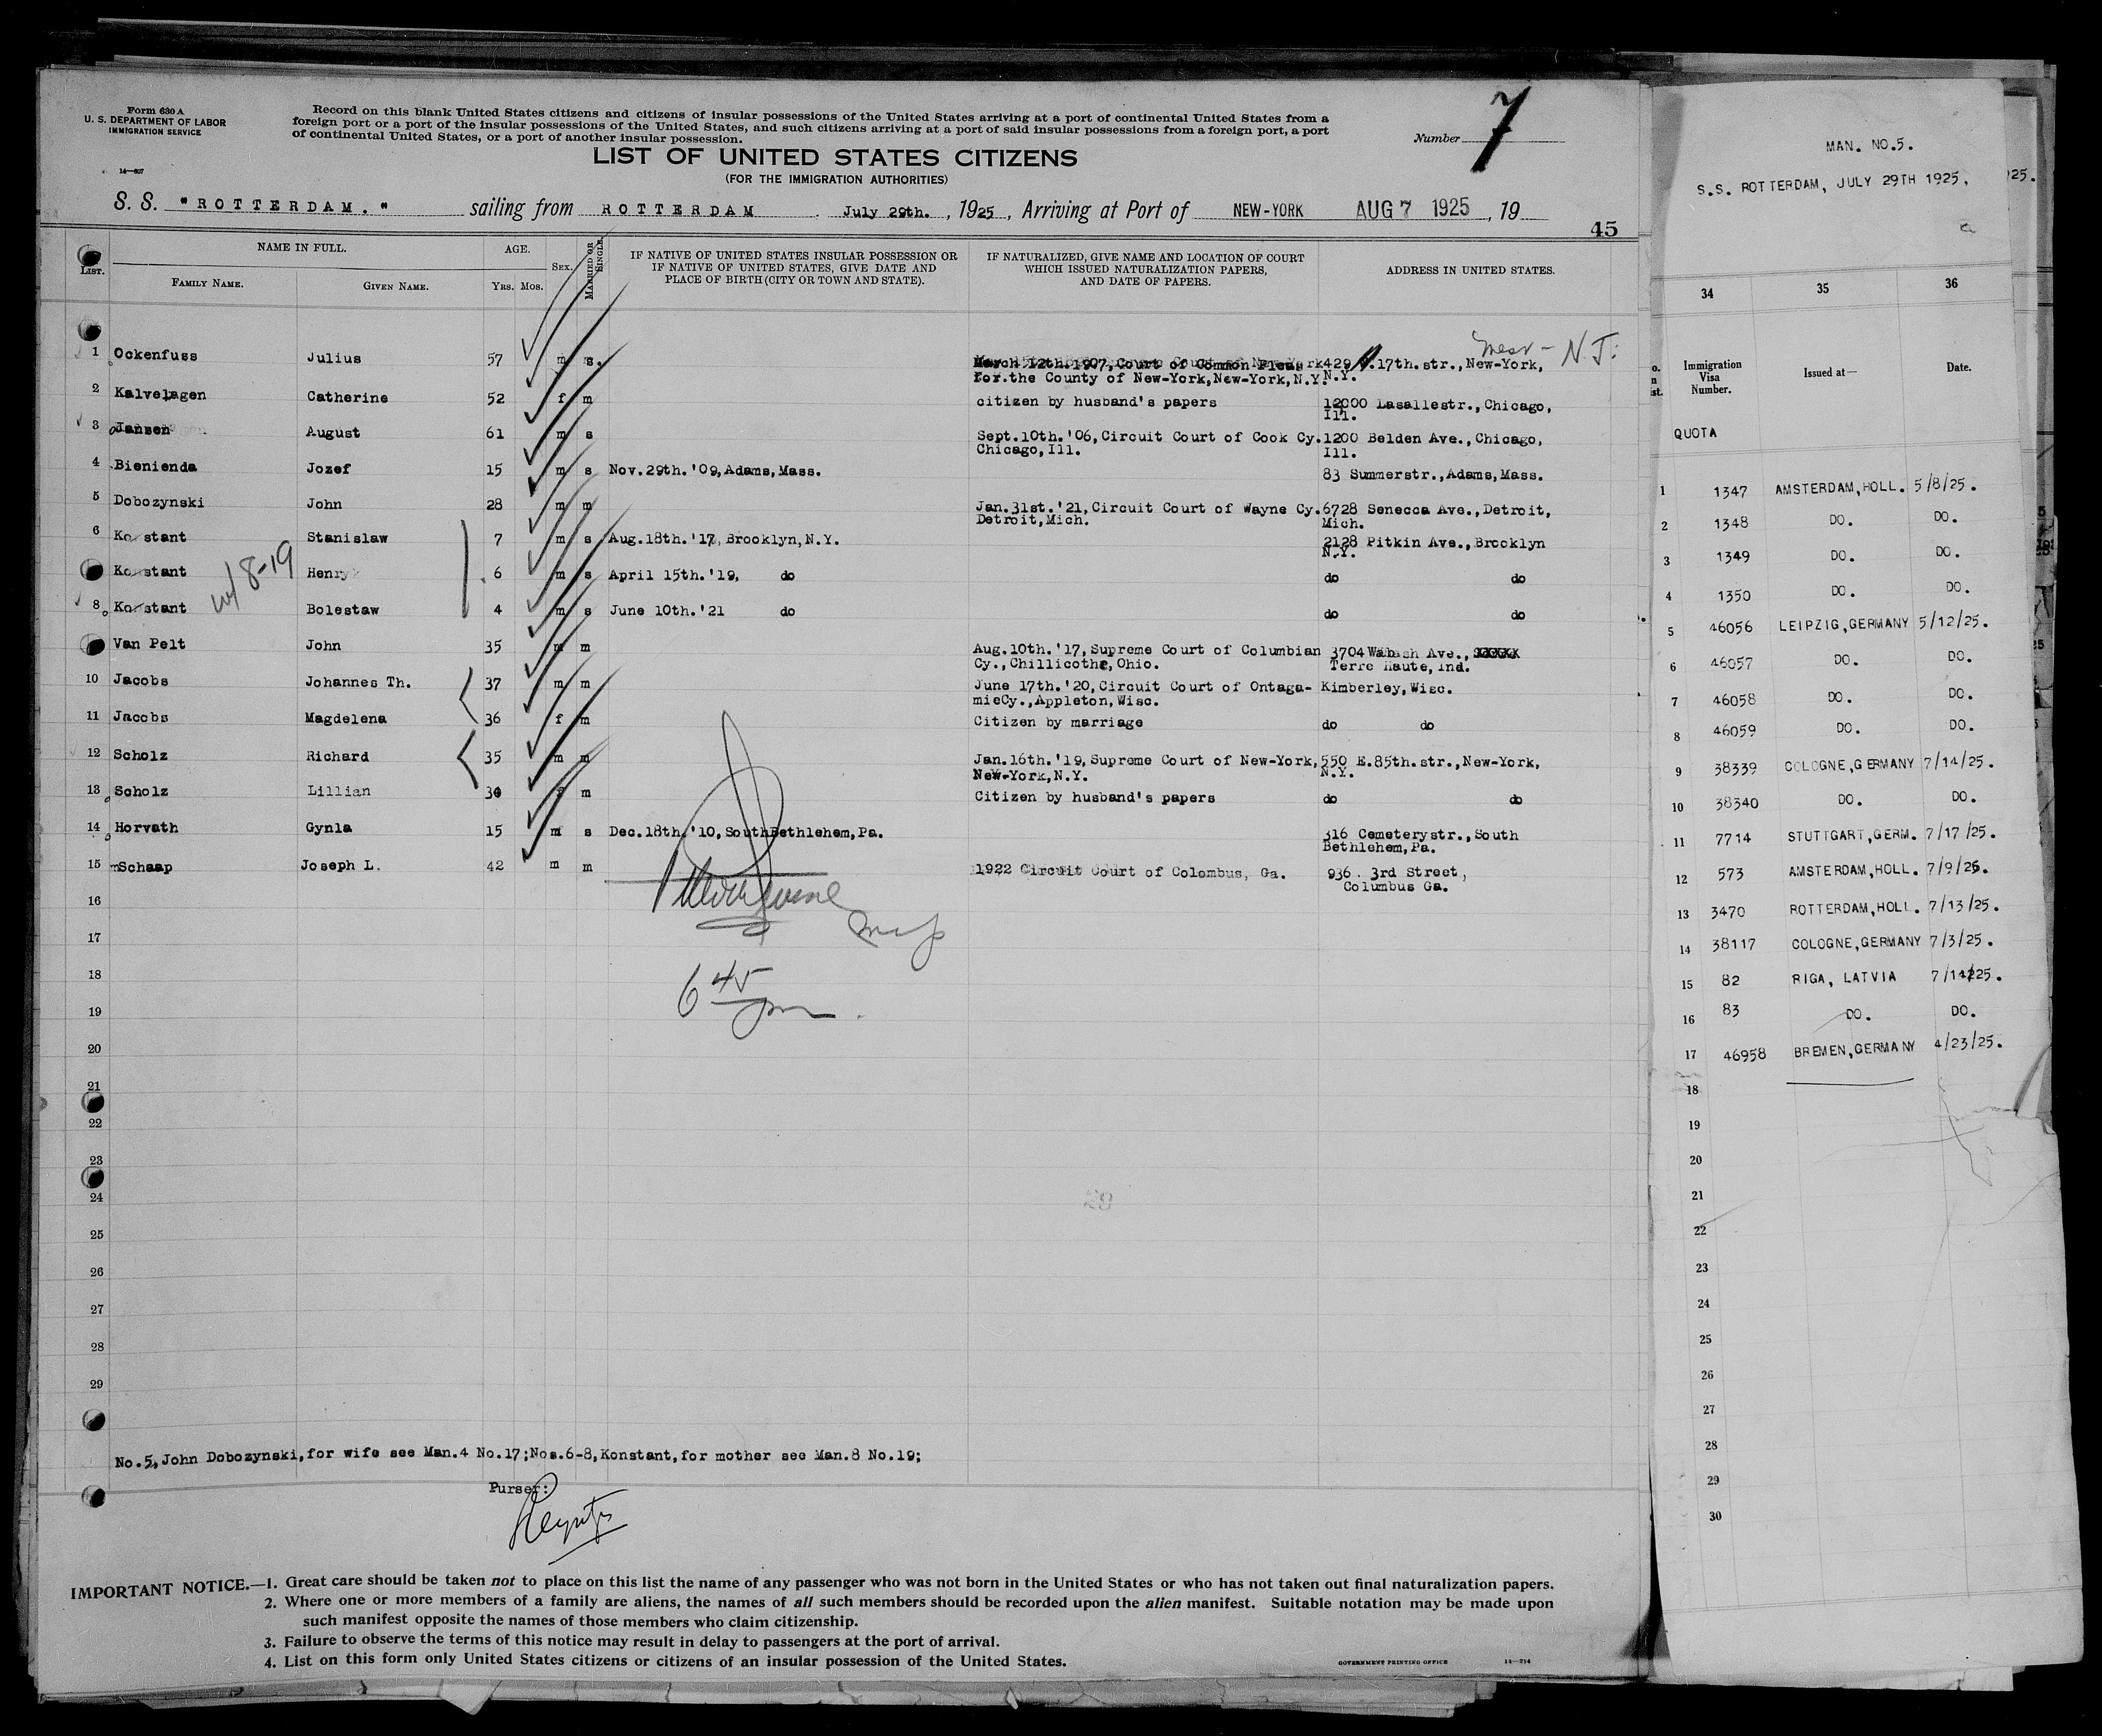 Form 630 A
U. S. DEPARTMENT OF LABOR
IMMIGRATION SERVICE
14—607
Record on this blank United States citizens and citizens of insular possessions of the United States arriving at a port of continental United States from a
foreign port or a port of the insular possessions of the United States, and such citizens arriving at a port of said insular possessions from a foreign port, a port
of continental United States, or a port of another insular possession.
Number 7
LIST OF UNITED STATES CITIZENS
(FOR THE IMMIGRATION AUTHORITIES)
S. S. "ROTTERDAM." sailing from ROTTERDAM July 29th. , 1925 , Arriving at Port of NEW-YORK AUG 7 1925 , 19
45
LIST.
NAME IN FULL.
FAMILY NAME. GIVEN NAME.
AGE.
YRS. MOS.
SEX.
MARRIED OR SINGLE.
IF NATIVE OF UNITED STATES INSULAR POSSESSION OR
IF NATIVE OF UNITED STATES, GIVE DATE AND
PLACE OF BIRTH (CITY OR TOWN AND STATE).
IF NATURALIZED, GIVE NAME AND LOCATION OF COURT
WHICH ISSUED NATURALIZATION PAPERS,
AND DATE OF PAPERS.
ADDRESS IN UNITED STATES.
N.J.
1 Ockenfuss Julius 57 m s. March 12th.1907, Court of Common Pleas 429 17th.str.,New-York,
for.the County of New-York,New-York,N.Y. N.Y.
2 Kalvelagen Catherine 52 f m citizen by husband's papers 12000 Lasallestr.,Chicago,
Ill.
3 Jansen August 61 m s Sept.10th.'06,Circuit Court of Cook Cy. 1200 Belden Ave.,Chicago,
Chicago,Ill. Ill.
4 Bienienda Jozef 15 m s Nov.29th.'09,Adams,Mass. 83 Summerstr.,Adams,Mass.
5 Dobozynski John 28 m m Jan.31st.'21,Circuit Court of Wayne Cy. 6728 Senecca Ave.,Detroit,
Detroit,Mich. Mich.
6 Konstant Stanislaw 7 m s Aug.18th.'17, Brooklyn,N.Y. 2128 Pitkin Ave.,Brooklyn
N.Y.
Konstant Henry 6 m s April 15th.'19, do do do
w/ 8-19
8 Konstant Bolestaw 4 m s June 10th.'21 do do do
Van Pelt John 35 m m Aug.10th.'17,Supreme Court of Columbian 3704 Wabash Ave.,
Cy.,Chillicothe,Ohio. Terre Haute,Ind.
10 Jacobs Johannes Th. 37 m m June 17th.'20,Circuit Court of Ontaga- Kimberley,Wisc.
mieCy.,Appleton,Wisc.
11 Jacobs Magdelena 36 f m Citizen by marriage do do
12 Scholz Richard 35 m m Jan.16th.'19,Supreme Court of New-York, 550 E.85th.str.,New-York,
New-York,N.Y. N.Y.
13 Scholz Lillian 34 f m Citizen by husband's papers do do
14 Horvath Gynla 15 m s Dec.18th.'10,SouthBethlehem,Pa. 316 Cemeterystr.,South
Bethlehem,Pa.
15 Schaap Joseph L. 42 m m 1922 Circuit Court of Colombus, Ga. 936. 3rd Street,
Columbus Ga.
16
17
18
6 45 pm.
19
20
21
22
23
24
29
25
26
27
28
29
No.5,John Dobozynski,for wife see Man.4 No.17;Nos.6-8,Konstant,for mother see Man.8 No.19;
Purser:
IMPORTANT NOTICE.—1. Great care should be taken not to place on this list the name of any passenger who was not born in the United States or who has not taken out final naturalization papers.
2. Where one or more members of a family are aliens, the names of all such members should be recorded upon the alien manifest. Suitable notation may be made upon
such manifest opposite the names of those members who claim citizenship.
3. Failure to observe the terms of this notice may result in delay to passengers at the port of arrival.
4. List on this form only United States citizens or citizens of an insular possession of the United States.
GOVERNMENT PRINTING OFFICE 14—214
MAN. NO.5.
S.S. ROTTERDAM, JULY 29TH 1925,
25.
34 35 36
Immigration
Visa
Number.
Issued at—
Date.
QUOTA
1 1347 AMSTERDAM,HOLL. 5/8/25.
2 1348 DO. DO.
3 1349 DO. DO.
4 1350 DO. DO.
5 46056 LEIPZIG,GERMANY 5/12/25.
6 46057 DO. DO.
7 46058 DO. DO.
8 46059 DO. DO.
9 38339 COLOGNE,GERMANY 7/14/25.
10 38340 DO. DO.
11 7714 STUTTGART,GERM. 7/17/25.
12 573 AMSTERDAM,HOLL. 7/9/25.
13 3470 ROTTERDAM,HOLL. 7/13/25.
14 38117 COLOGNE,GERMANY 7/3/25.
15 82 RIGA, LATVIA 7/14/25.
16 83 DO. DO.
17 46958 BREMEN,GERMANY 4/23/25.
18
19
20
21
22
23
24
25
26
27
28
29
30